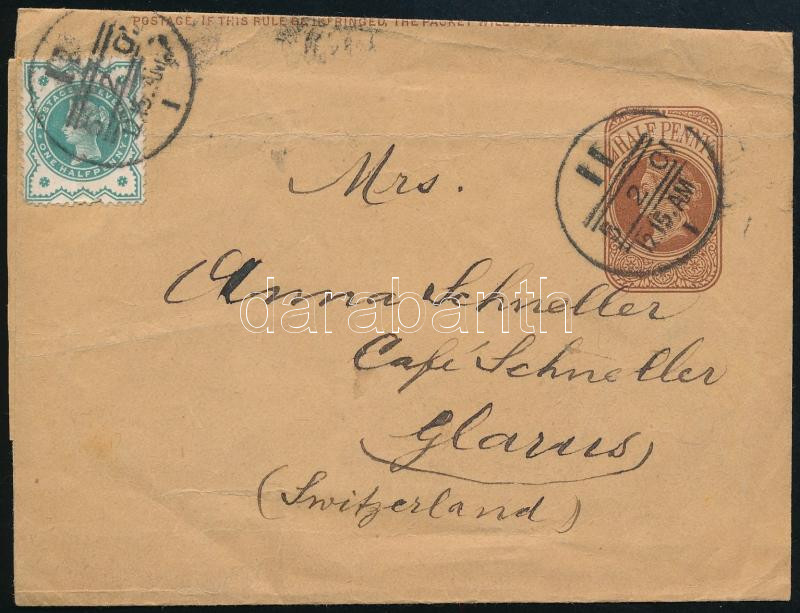 POSTAGE. IF THIS RULE BE INFRINGED, THE PACKET WILL BE
POSTAGE
ONE HALFPENNY
HALF PENNY
2
12 15.AM
1
Mrs.
Anna Schneller
Café Schneller
Glarus
(Switzerland)
darabanth